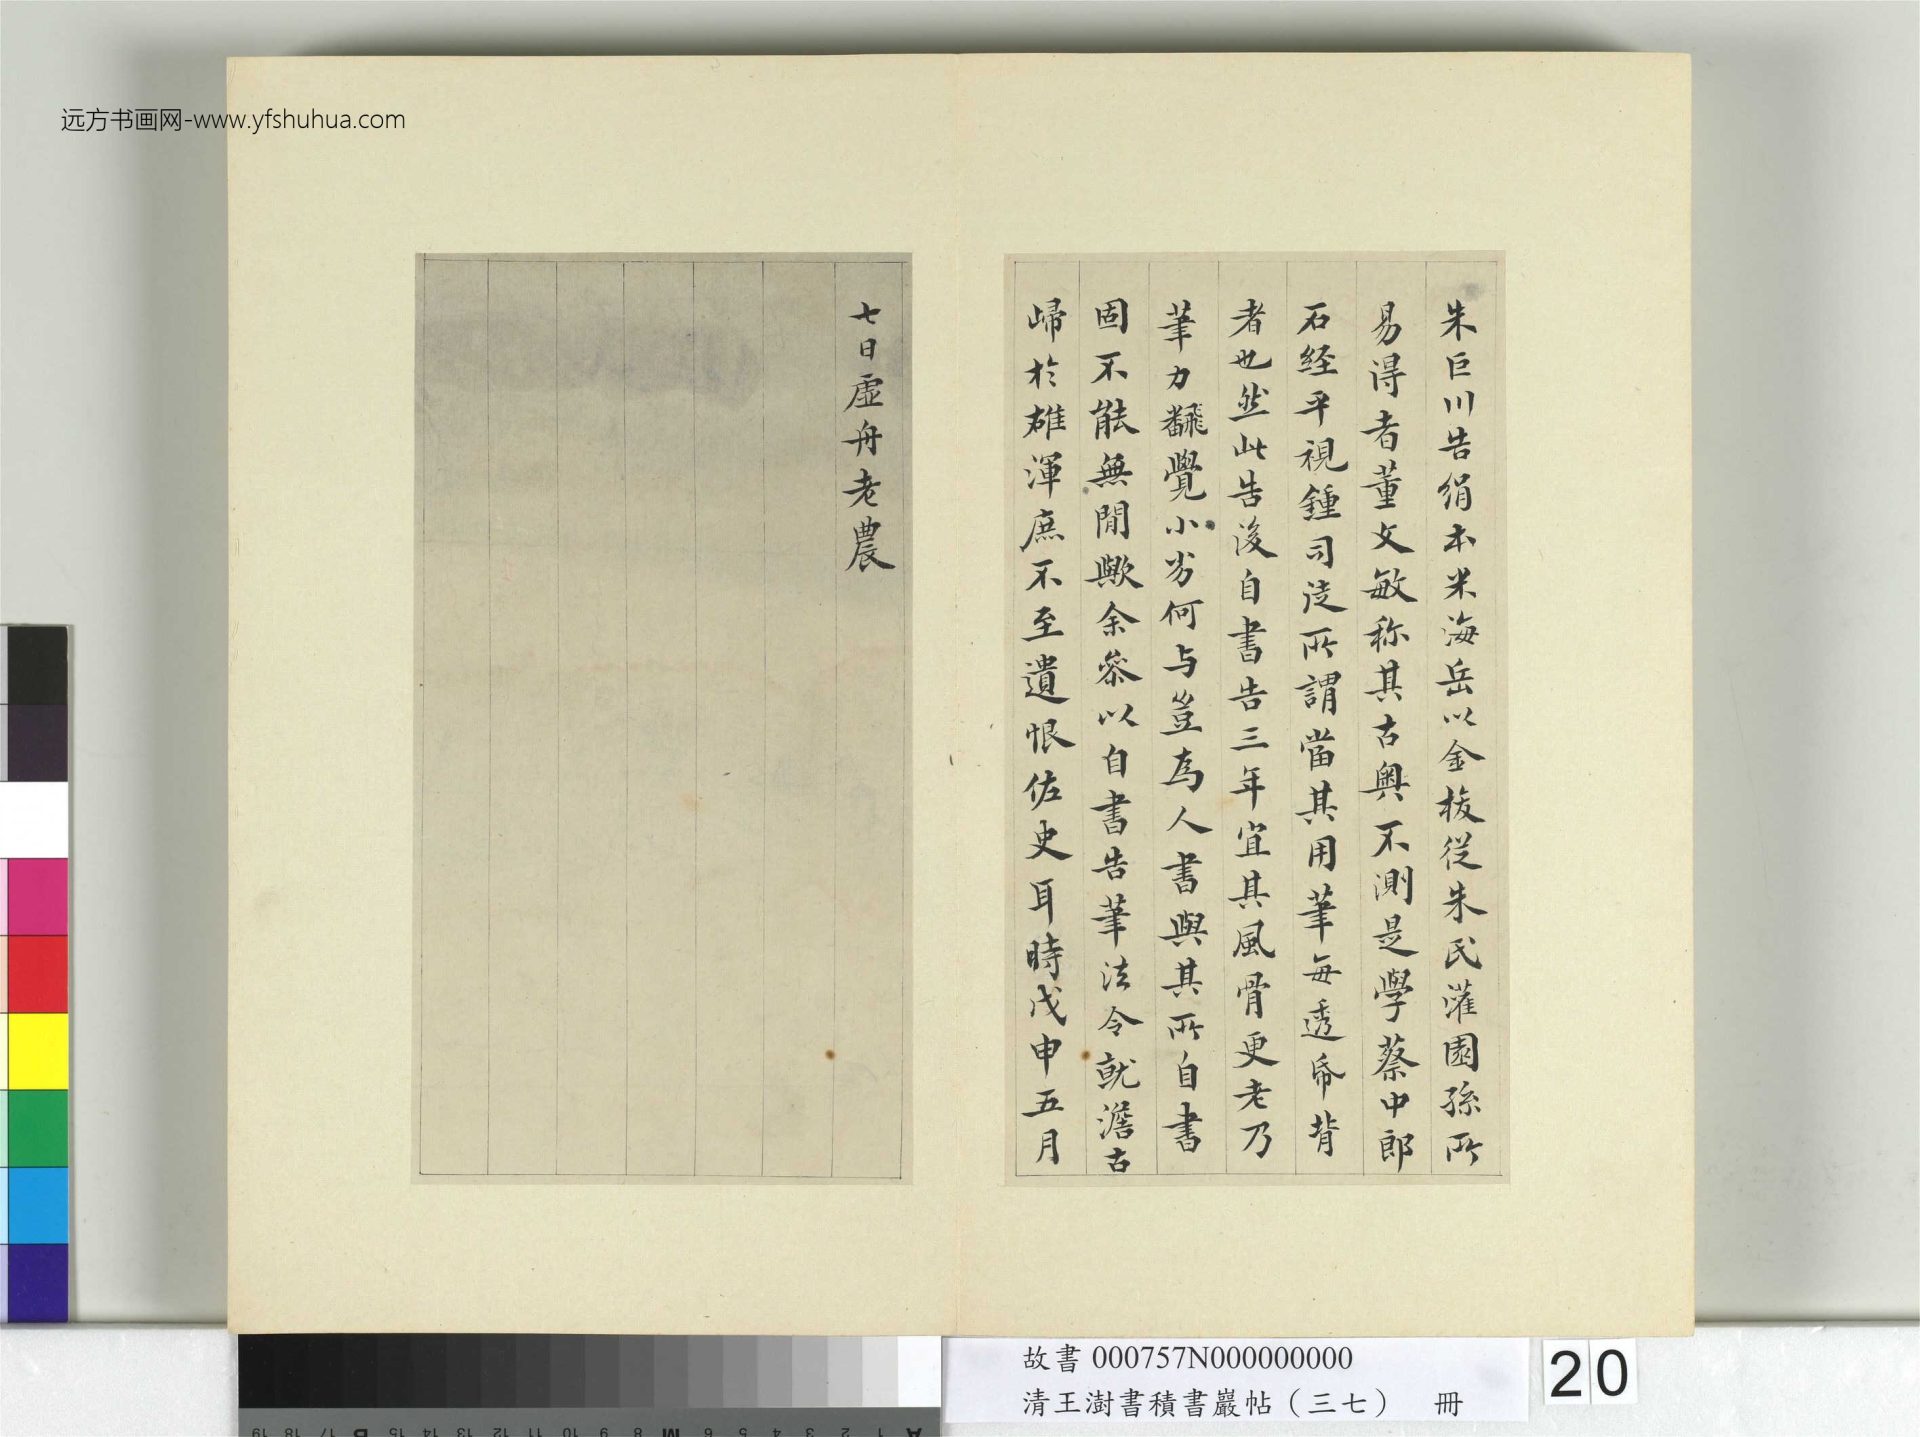 远方书画网-www.yfshuhua.com
朱巨川告絹本米海岳以金梭從朱氏灌園孫所
易得者董文敏称其古奥不測是學蔡中郎
石经平視鍾司徒所謂當其用筆每透帋背
者也然此告後自書告三年宜其風骨更老乃
筆力飜覺小劣何与豈爲人書與其所自書
固不能無閒歟余叅以自書告筆法令就澹古
歸於雄渾庶不至遺恨佐史耳時戊申五月
七日虛舟老農
故書 000757N000000000
清王澍書積書巖帖（三七） 冊
20